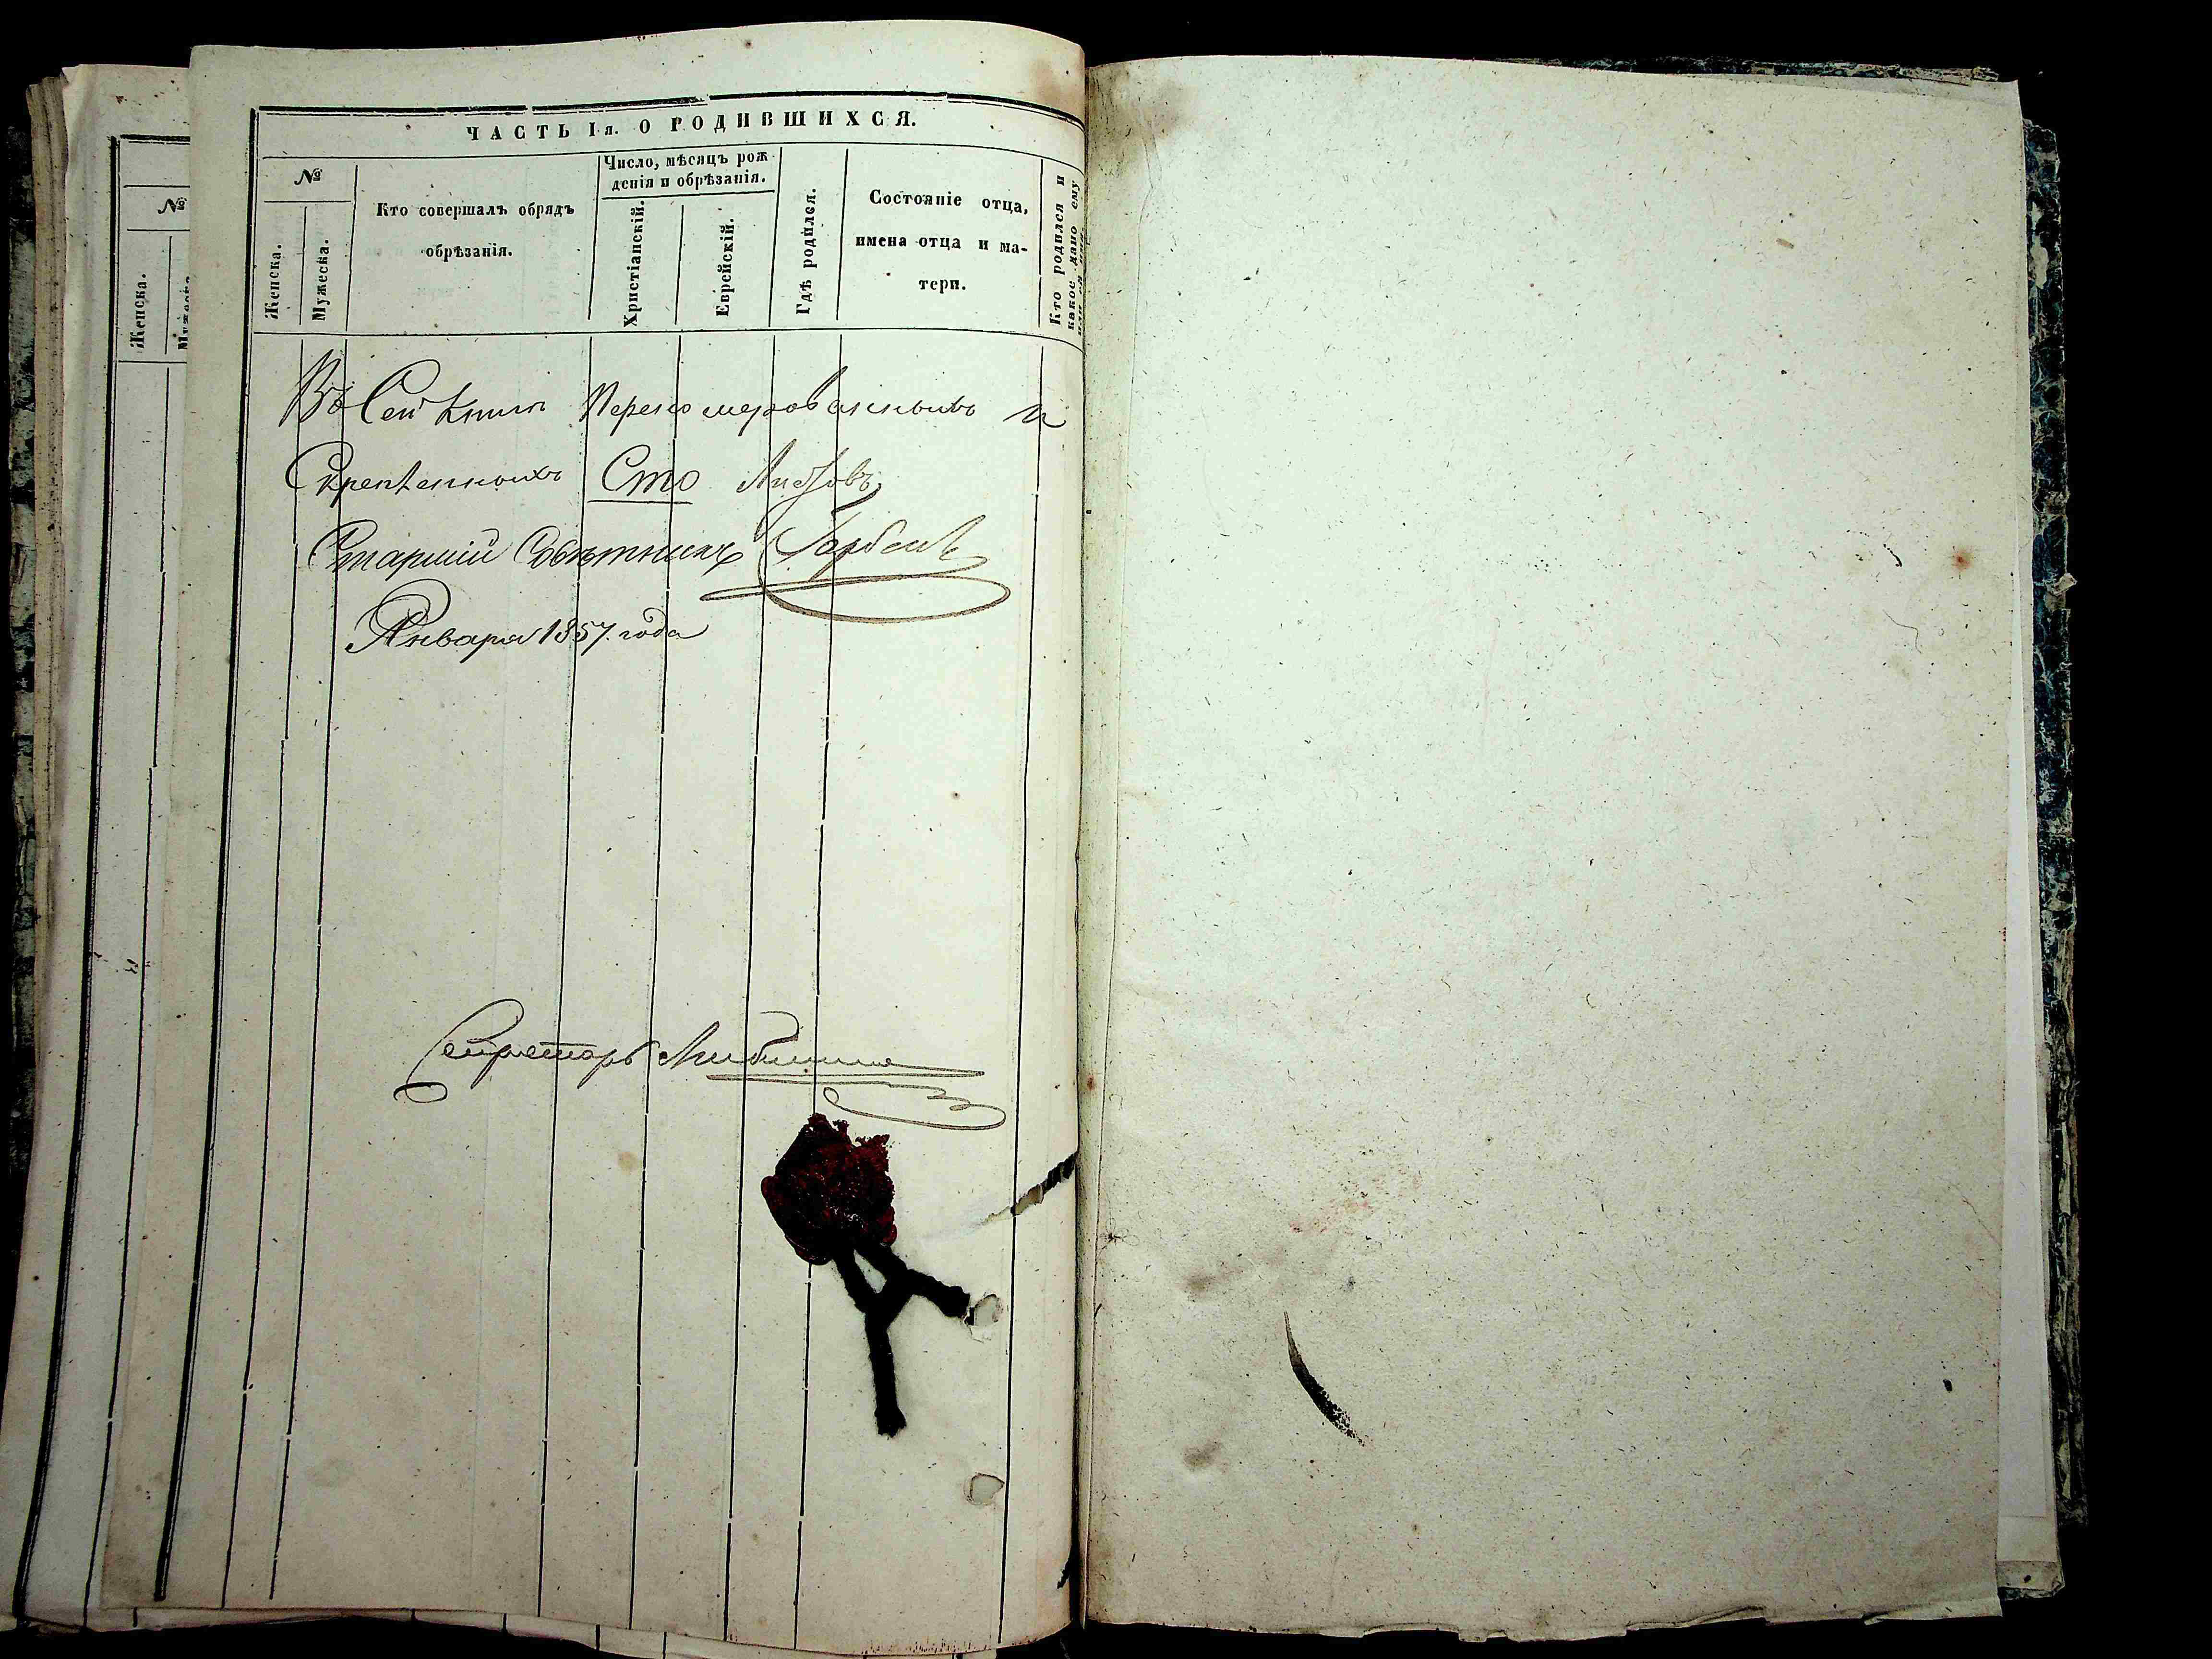 ЧАСТЬ Iя. О РОДИВШИХСЯ.
№
Женска.
Мужеска.
Кто совершалъ обрядъ
обрѣзанія.
Число, мѣсяцъ рож
денія и обрѣзанія.
Христіанскій.
Еврейскій.
Гдѣ родился.
Состояніе отца,
имена отца и ма-
тери.
Кто родился и
какое дано ему
№
Женска.
Въ Сей Книги Переномерованныхъ и
Скрепленныхъ Сто Листовъ
Старшій Совѣтникъ
Января 1857. года
Секретарь